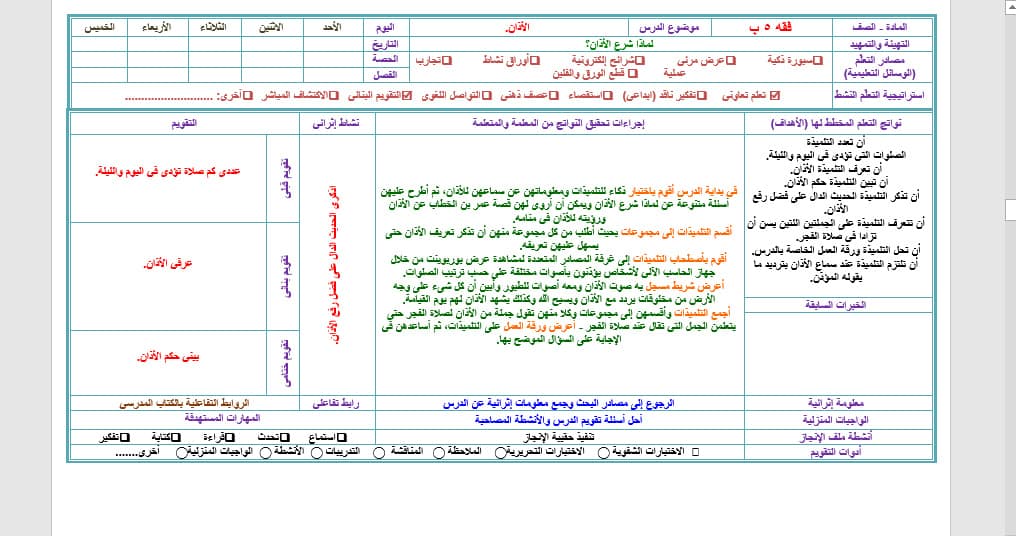 المادة - الصف
فقه ٥ ب
موضوع الدرس
الأذان.
اليوم
الأحد
الاثنين
الثلاثاء
الأربعاء
الخميس
التهيئة والتمهيد
لماذا شرع الأذان؟
التاريخ
مصادر التعلم
(الوسائل التعليمية)
سبورة ذكية
عرض مرئي
شرائح إلكترونية
أوراق نشاط
تجارب
عملية
قطع الورق والفلين
الحصة
الفصل
استراتيجية التعلم النشط
تعلم تعاوني
تفكير ناقد (ابداعي)
استقصاء
عصف ذهني
التواصل اللغوي
التقويم البنائي
الاكتشاف المباشر
أخرى: ...........................
نواتج التعلم المخطط لها (الأهداف)
إجراءات تحقيق النواتج من المعلمة والمتعلمة
نشاط إثرائي
التقويم
أن تعدد التلميذة
الصلوات التي تؤدى في اليوم والليلة.
أن تعرف التلميذة الأذان.
أن تبين التلميذة حكم الأذان.
أن تذكر التلميذة الحديث الدال على فضل رفع
الأذان.
أن تتعرف التلميذة على الجملتين اللتين يسن أن
تزادا في صلاة الفجر.
أن تحل التلميذة ورقة العمل الخاصة بالدرس.
أن تلتزم التلميذة عند سماع الأذان بترديد ما
يقوله المؤذن.
الخبرات السابقة
في بداية الدرس أقوم باختبار ذكاء للتلميذات ومعلوماتهن عن سماعهن للأذان، ثم أطرح عليهن
أسئلة متنوعة عن لماذا شرع الأذان ويمكن أن أروي لهن قصة عمر بن الخطاب عن الأذان
ورؤيته للأذان في منامه.
أقسم التلميذات إلى مجموعات بحيث أطلب من كل مجموعة منهن أن تذكر تعريف الأذان حتى
يسهل عليهن تعريفه.
أقوم بأصطحاب التلميذات إلى غرفة المصادر المتعددة لمشاهدة عرض بوربوينت من خلال
جهاز الحاسب الآلي لأشخاص يؤذنون بأصوات مختلفة على حسب ترتيب الصلوات.
أعرض شريط مسجل به صوت الأذان ومعه أصوات للطيور وأبين أن كل شيء على وجه
الأرض من مخلوقات يردد مع الأذان ويسبح الله وكذلك يشهد الأذان لهم يوم القيامة.
أجمع التلميذات وأقسمهن إلى مجموعات وكلا منهن تقول جملة من الأذان لصلاة الفجر حتى
يتعلمن الجمل التي تقال عند صلاة الفجر - أعرض ورقة العمل على التلميذات، ثم أساعدهن في
الإجابة على السؤال الموضح بها.
اذكري الحديث الدال على فضل رفع الأذان.
تقويم قبلي
عددي كم صلاة تؤدى في اليوم والليلة.
تقويم بنائي
عرفي الأذان.
تقويم ختامي
بيني حكم الأذان.
معلومة إثرائية
الرجوع إلى مصادر البحث وجمع معلومات إثرائية عن الدرس
رابط تفاعلي
الروابط التفاعلية بالكتاب المدرسي
الواجبات المنزلية
أحل أسئلة تقويم الدرس والأنشطة المصاحبة
المهارات المستهدفة
أنشطة ملف الإنجاز
تنفيذ حقيبة الإنجاز
استماع
تحدث
قراءة
كتابة
تفكير
أدوات التقويم
الاختبارات الشفوية
الاختبارات التحريرية
الملاحظة
المناقشة
التدريبات
الأنشطة
الواجبات المنزلية
أخرى.......